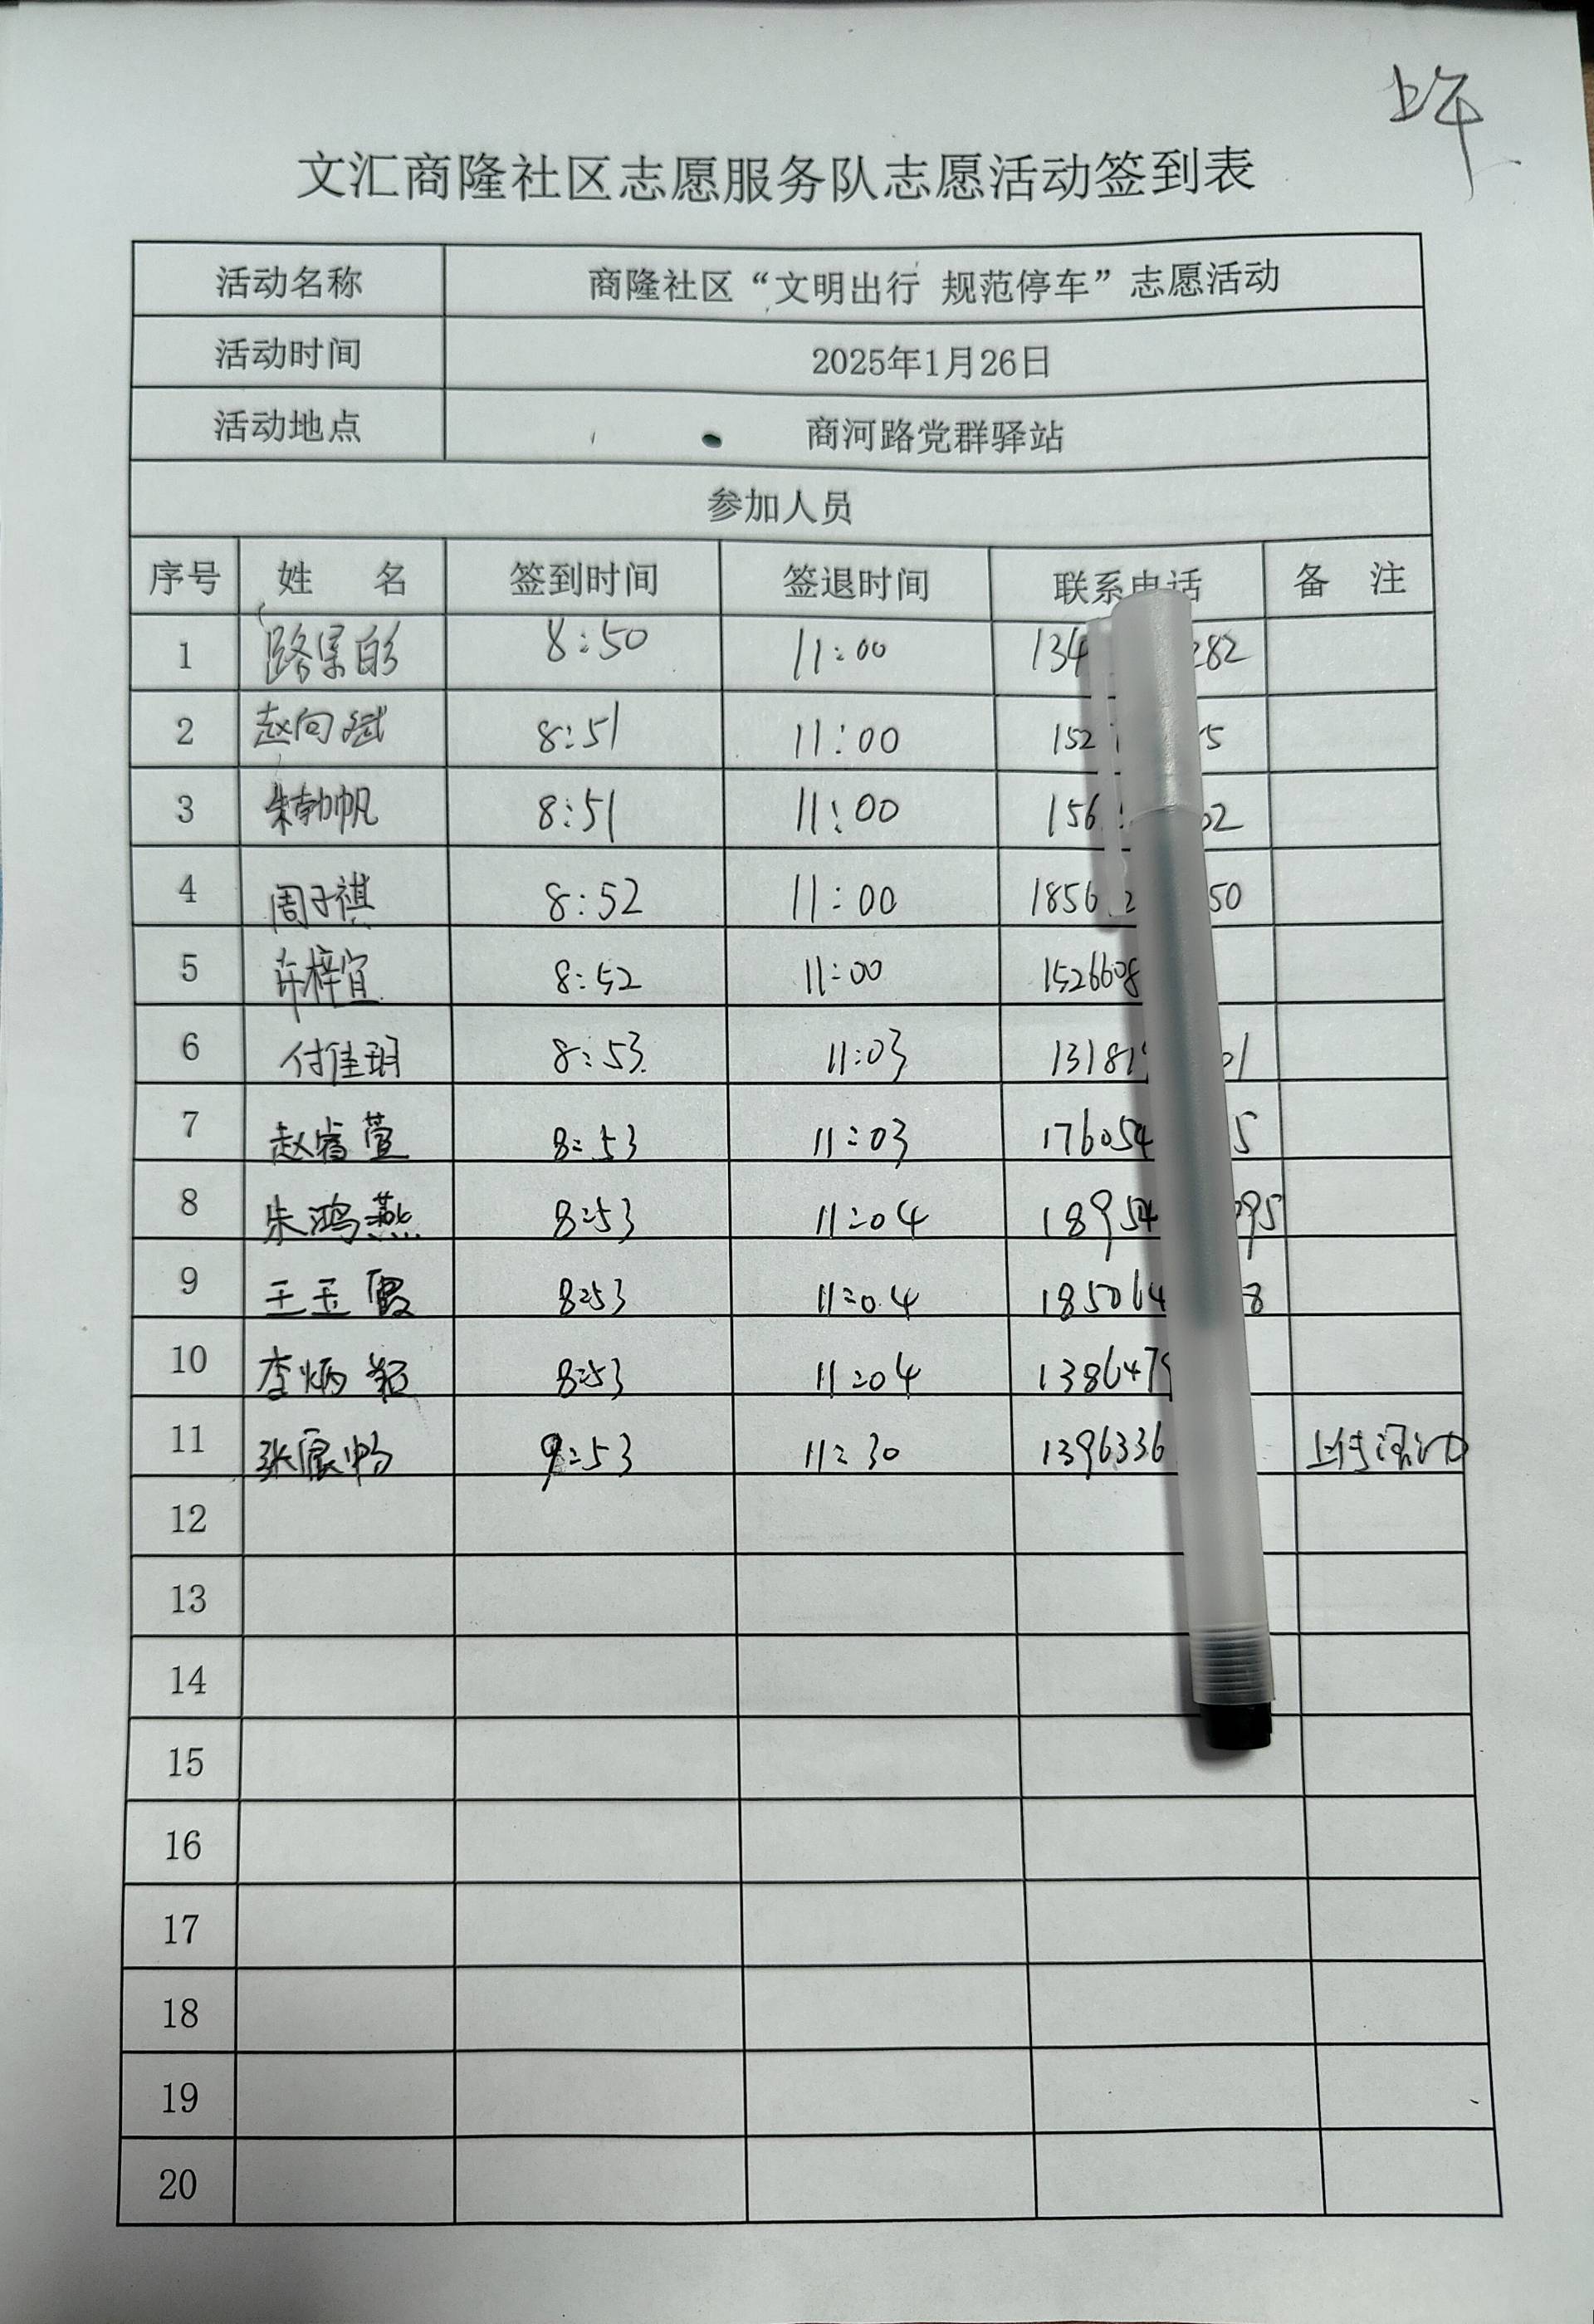 上午
文汇商隆社区志愿服务队志愿活动签到表
活动名称 商隆社区“文明出行 规范停车”志愿活动
活动时间 2025年1月26日
活动地点 商河路党群驿站
参加人员
序号 姓 名 签到时间 签退时间 联系电话 备 注
1 8:50 11:00 134 282
2 赵向斌 8:51 11:00 152 5
3 朱勃帆 8:51 11:00 156 02
4 周子祺 8:52 11:00 1856 2 50
5 许梓宜 8:52 11:00 1526608
6 付佳玥 8:53 11:03 1318 01
7 赵睿萱 8:53 11:03 176054 5
8 朱鸿燕 8:53 11:04 18954 095
9 王玉霞 8:53 11:04 185064 8
10 李炳 8:53 11:04 1386479
11 张宸畅 9:53 11:30 1396336 上传活动
12
13
14
15
16
17
18
19
20